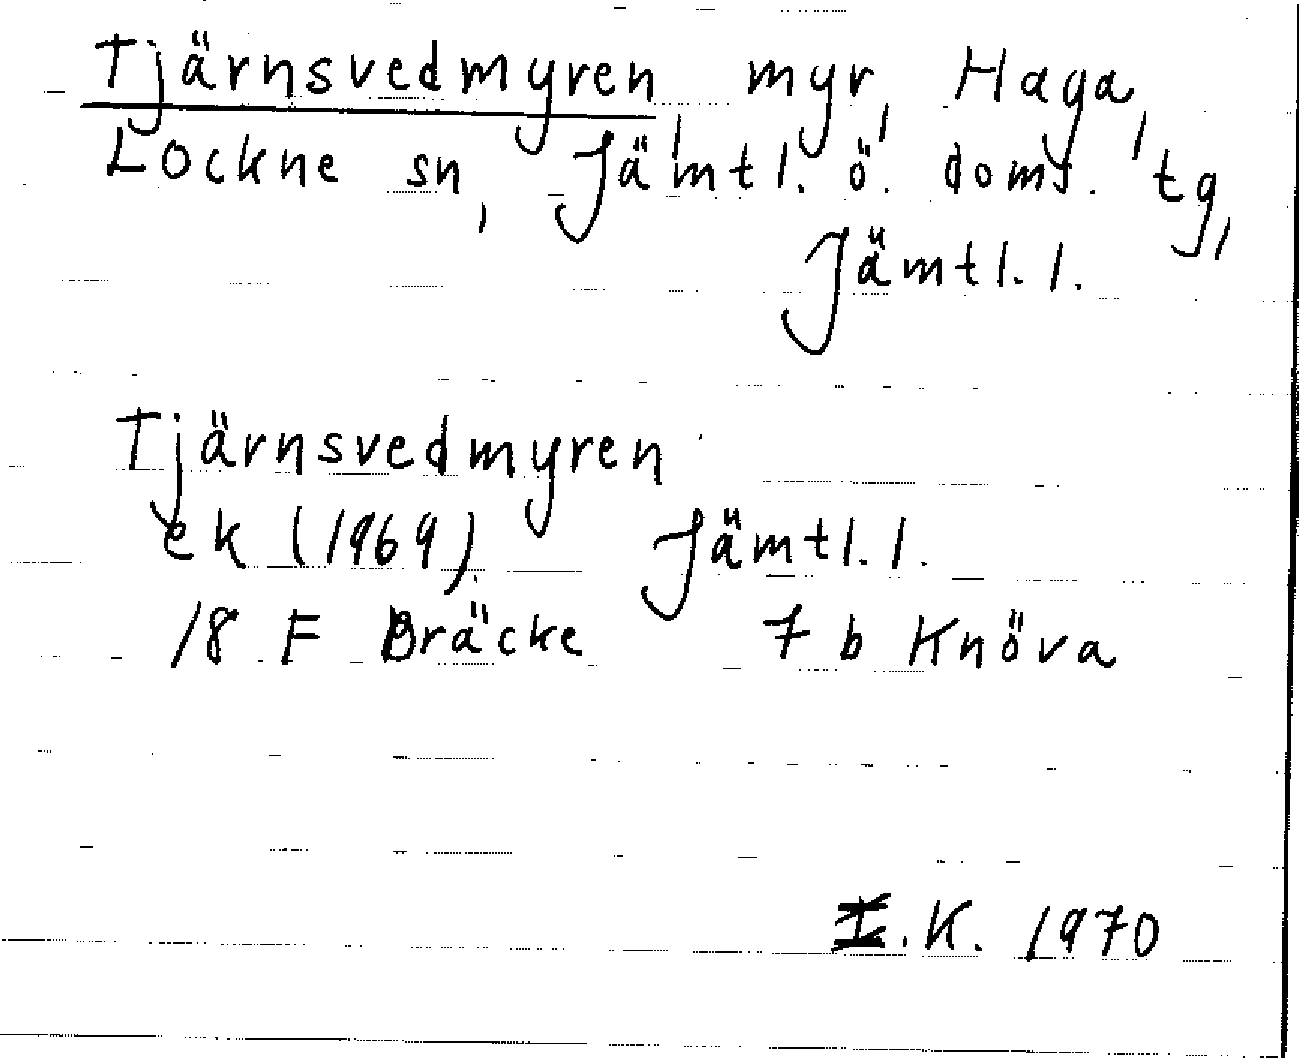 Tjärnsvedmyren, myr, Haga,
Lockne sn, Jämtl. ö. doms. tg,
Jämtl. l.
Tjärnsvedmyren
ek (1969) Jämtl. l.
18 F Bräcke 7 b Knöva
I.K. 1970